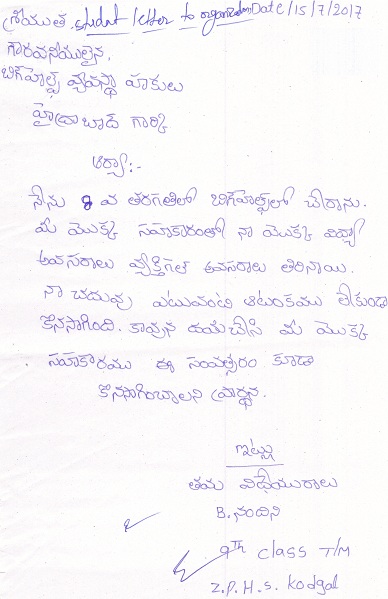 శ్రీయుత. student letter to organization Date/15/7/2017
గౌరవనీయులైన,
బిగ్‌హెల్ప్ వ్యవస్థా పకులు
హైద్రాబాద్ గార్కి
ఆర్యా:-
నేను 8 వ తరగతిలో బిగ్‌హెల్ప్‌లో చేరాను.
మీ మొక్క సహకారంతో నా మొక్క విద్యా
అవసరాలు వ్యక్తిగత అవసరాలు తీరినాయి.
నా చదువు ఎటువంటి ఆటంకము లేకుండా
కొనసాగింది. కావున దయచేసి మీ మొక్క
సహకారము ఈ సంవత్సరం కూడా
కొనసాగించాలని ప్రార్థన.
ఇట్లు
తమ విధేయురాలు
B. నందిని
9th class T/M
Z.P.H.S. Kodgal